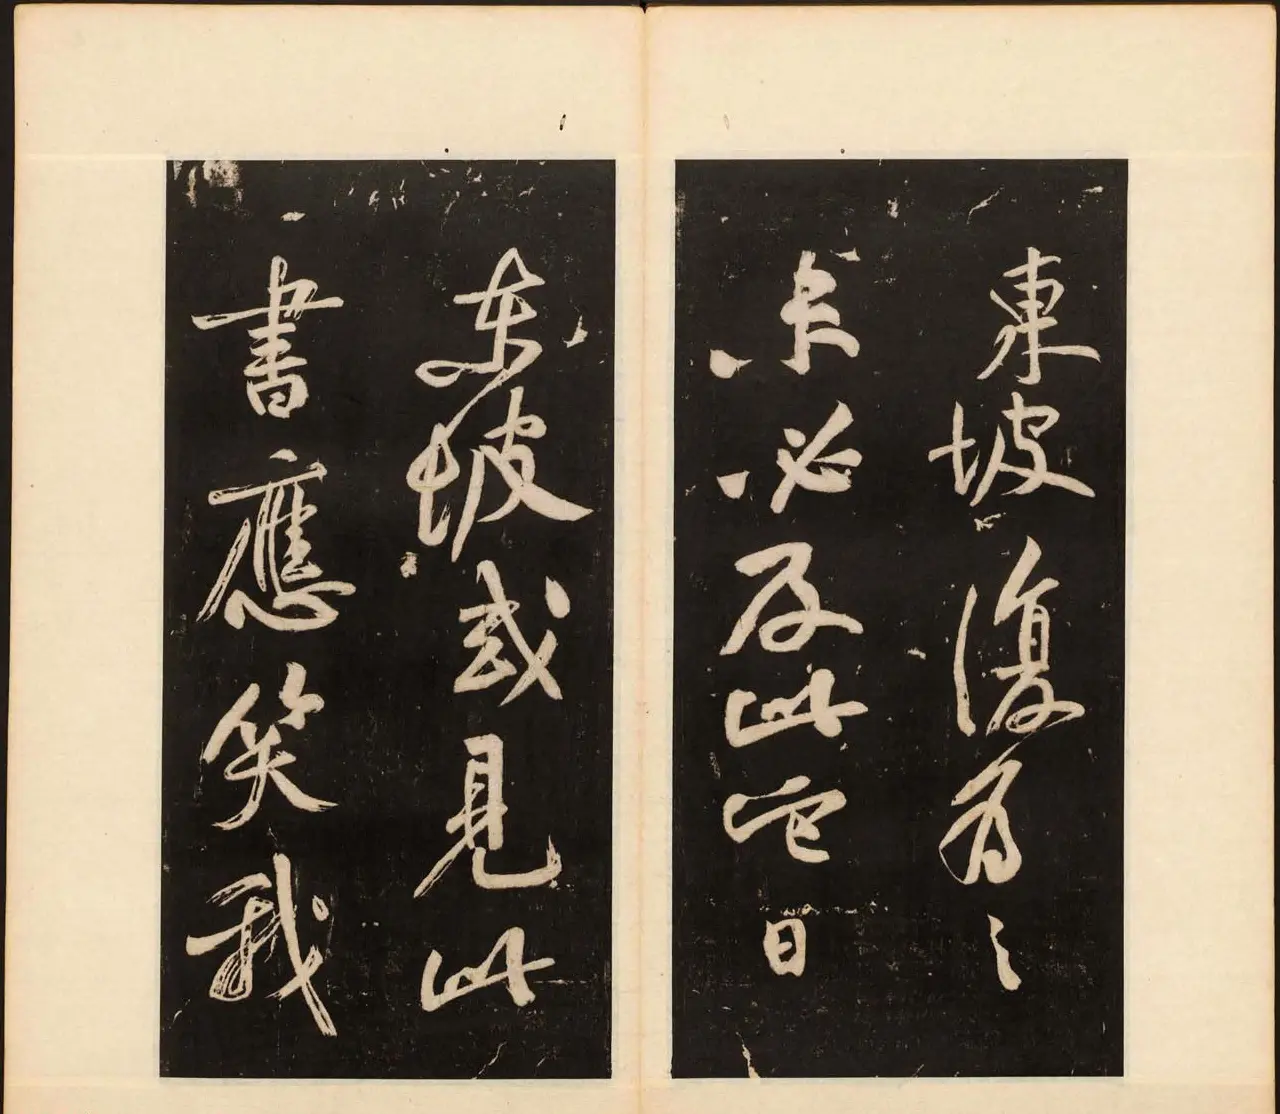 東坡復為之
未必及此它日
東坡或見此
書應笑我